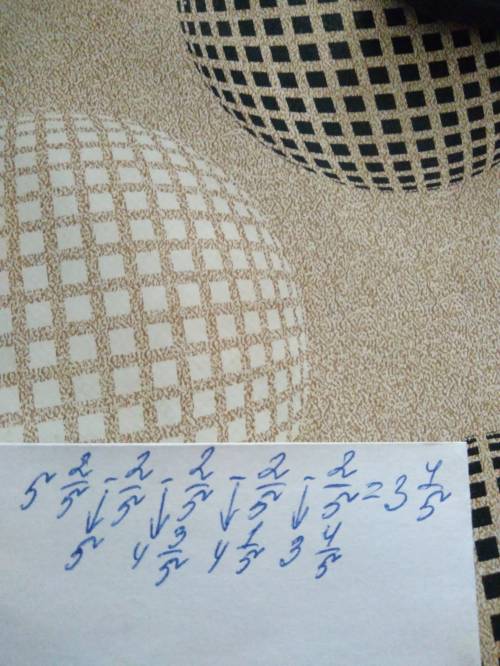 5 2/5 - 2/5 - 2/5 - 2/5 - 2/5 = 3 4/5
↓ ↓ ↓ ↓
5 4 3/5 4 1/5 3 4/5